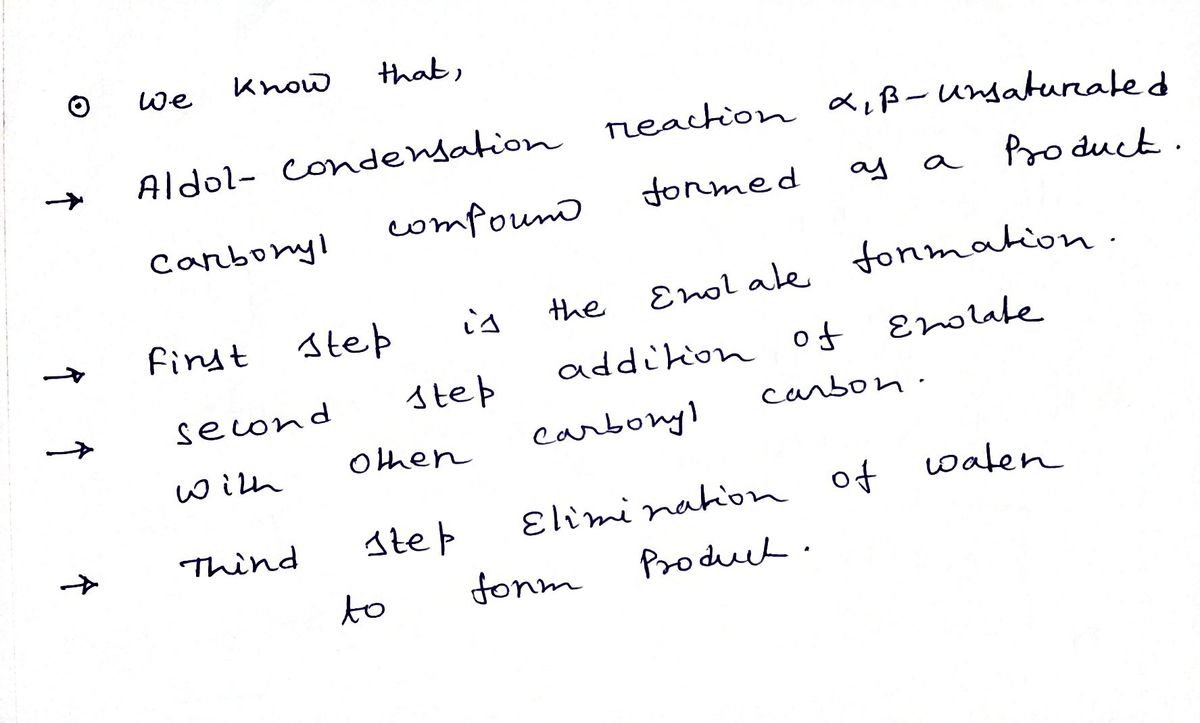 ⊙ We know that,
→ Aldol-condensation reaction α,β-unsaturated
carbonyl compound formed as a Product.
→ First step is the Enolate formation.
→ second step addition of Enolate
with other carbonyl carbon.
→ Third step Elimination of water
to form Product.